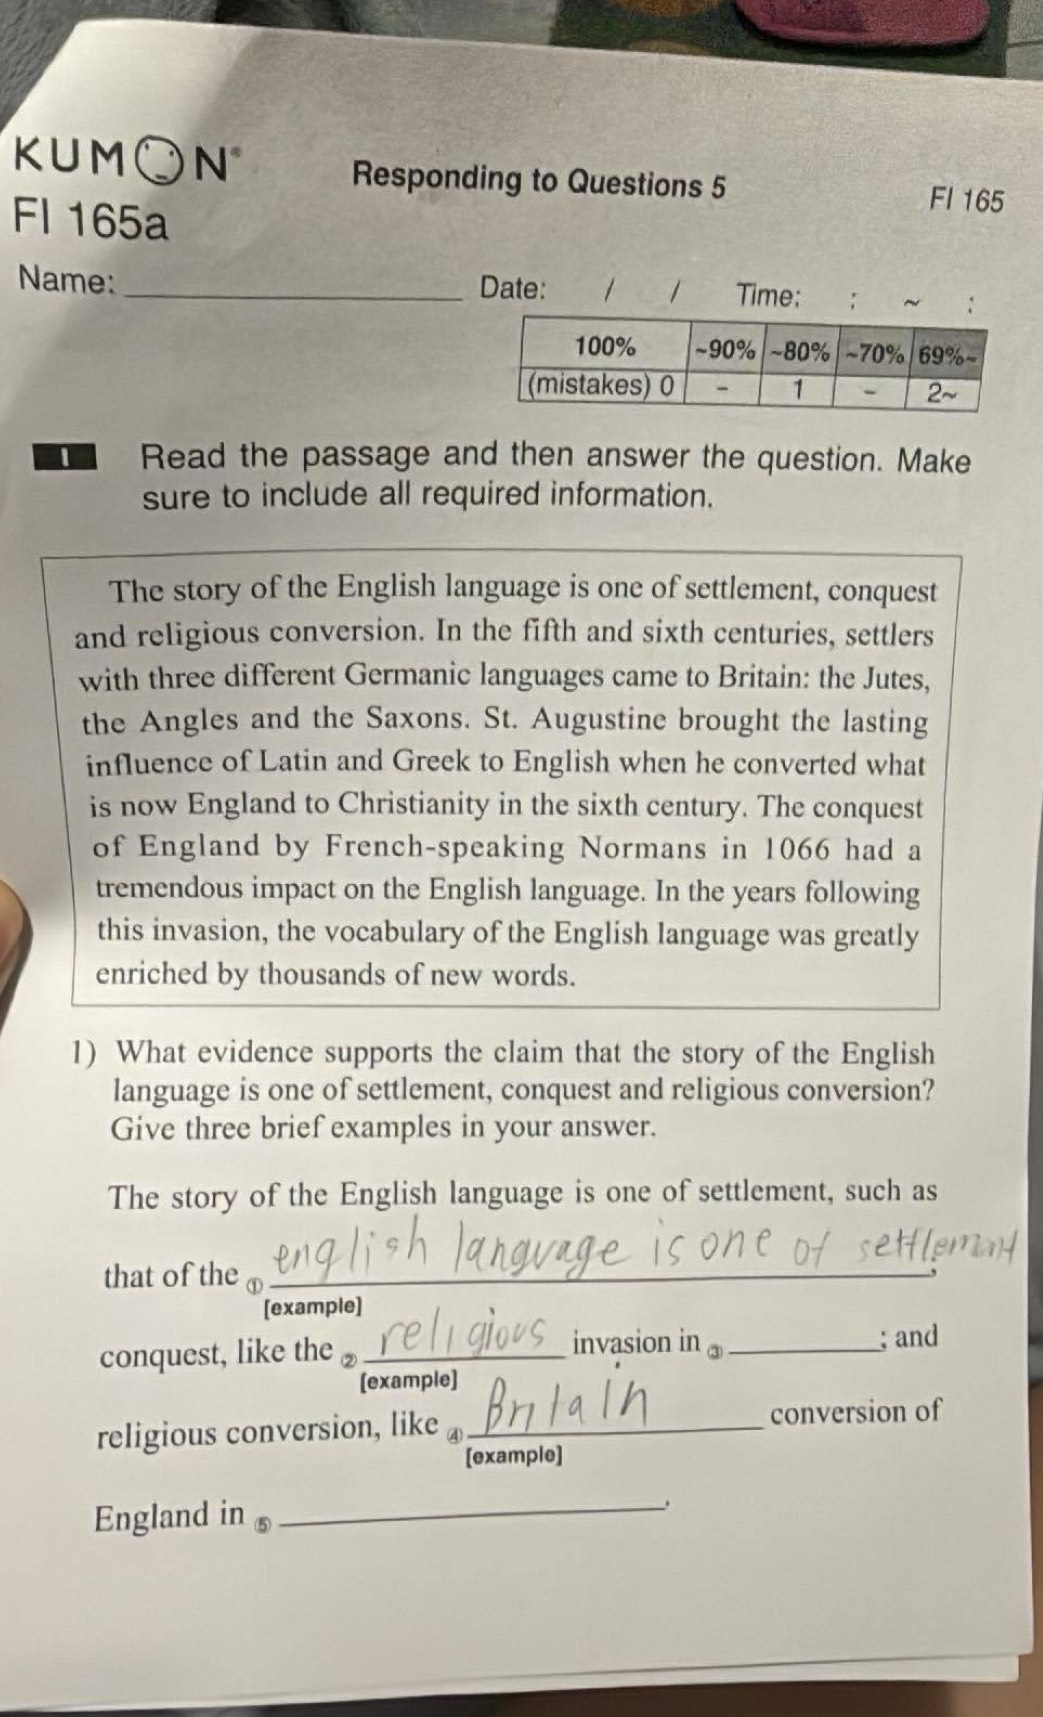 KUMON®
Responding to Questions 5
FI 165
FI 165a
Name:
Date: / / Time: : ~ :
100% ~90% ~80% ~70% 69%~
(mistakes) 0 - 1 - 2~
1 Read the passage and then answer the question. Make
sure to include all required information.
The story of the English language is one of settlement, conquest
and religious conversion. In the fifth and sixth centuries, settlers
with three different Germanic languages came to Britain: the Jutes,
the Angles and the Saxons. St. Augustine brought the lasting
influence of Latin and Greek to English when he converted what
is now England to Christianity in the sixth century. The conquest
of England by French-speaking Normans in 1066 had a
tremendous impact on the English language. In the years following
this invasion, the vocabulary of the English language was greatly
enriched by thousands of new words.
1) What evidence supports the claim that the story of the English
language is one of settlement, conquest and religious conversion?
Give three brief examples in your answer.
The story of the English language is one of settlement, such as
that of the ① english language is one of settlemant;
[example]
conquest, like the ② religious invasion in ③ ; and
[example]
religious conversion, like ④ Britain conversion of
[example]
England in ⑤ .